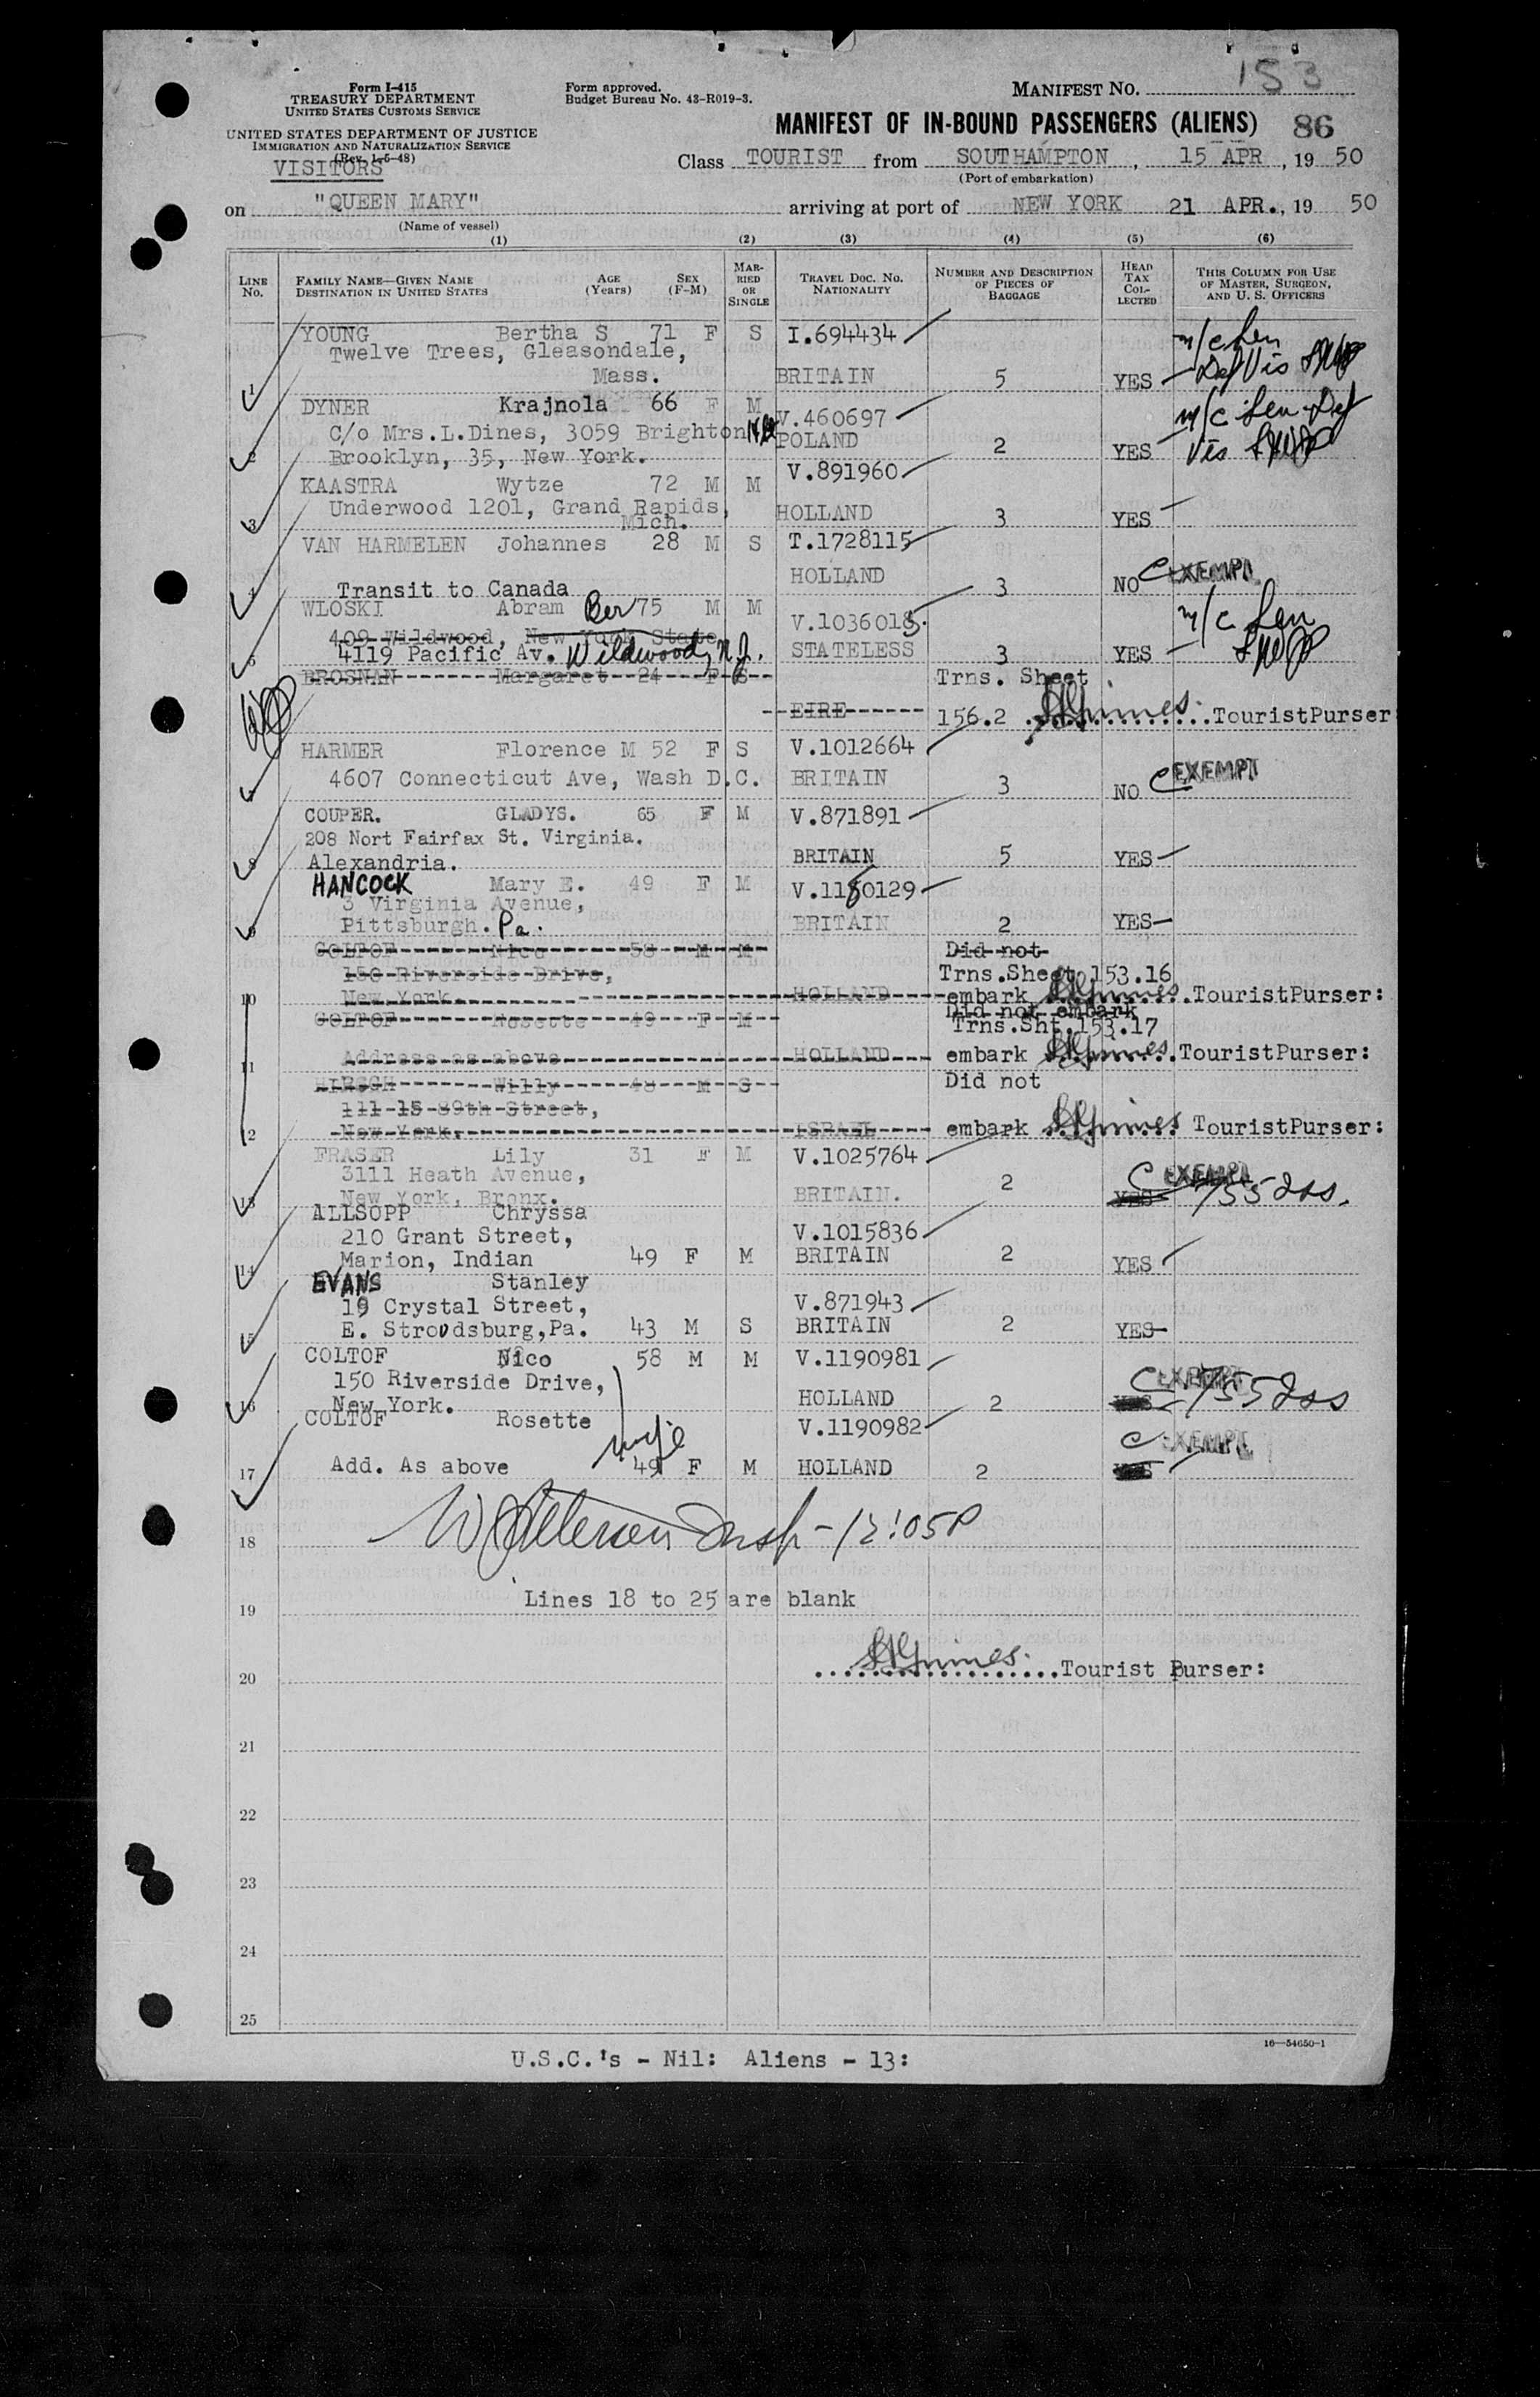 153
Form I-415
TREASURY DEPARTMENT
UNITED STATES CUSTOMS SERVICE
UNITED STATES DEPARTMENT OF JUSTICE
IMMIGRATION AND NATURALIZATION SERVICE
(Rev. 1-5-48)
VISITORS
Form approved.
Budget Bureau No. 43-R019-3.
MANIFEST NO.
MANIFEST OF IN-BOUND PASSENGERS (ALIENS) 86
Class TOURIST from SOUTHAMPTON, 15 APR, 19 50
(Port of embarkation)
on "QUEEN MARY" arriving at port of NEW YORK 21 APR., 19 50
(Name of vessel)
(1) (2) (3) (4) (5) (6)
LINE No.
FAMILY NAME—GIVEN NAME AGE (Years) SEX (F-M)
DESTINATION IN UNITED STATES
MARRIED OR SINGLE
TRAVEL DOC. NO. NATIONALITY
NUMBER AND DESCRIPTION OF PIECES OF BAGGAGE
HEAD TAX COLLECTED
THIS COLUMN FOR USE OF MASTER, SURGEON, AND U. S. OFFICERS
YOUNG Bertha S 71 F S I.694434
Twelve Trees, Gleasondale,
1 Mass. BRITAIN 5 YES
DYNER Krajnola 66 F M V.460697
C/o Mrs.L.Dines, 3059 Brighton POLAND
2 Brooklyn, 35, New York. 2 YES
KAASTRA Wytze 72 M M V.891960
Underwood 1201, Grand Rapids,
3 Mich. HOLLAND 3 YES
VAN HARMELEN Johannes 28 M S T.1728115
HOLLAND
4 Transit to Canada 3 NO EXEMPT
WLOSKI Abram Ber 75 M M V.1036018.
409 Wildwood, New York State
5 4119 Pacific Av. Wildwood, N.J. STATELESS 3 YES
BROSNAN Margaret 24 F S Trns. Sheet
EIRE 156.2 TouristPurser
HARMER Florence M 52 F S V.1012664
7 4607 Connecticut Ave, Wash D.C. BRITAIN 3 NO EXEMPT
COUPER. GLADYS. 65 F M V.871891
208 Nort Fairfax St. Virginia.
8 Alexandria. BRITAIN 5 YES
HANCOCK Mary E. 49 F M V.1180129
3 Virginia Avenue,
9 Pittsburgh. Pa. BRITAIN 2 YES
COLTOF Nico 58 M M Did not
150 Riverside Drive, Trns.Sheet 153.16
10 New York. HOLLAND embark TouristPurser:
COLTOF Rosette 49 F M Did not embark
Trns.Sht.153.17
11 Address as above HOLLAND embark TouristPurser:
HIRSCH Willy 48 M S Did not
111-15-89th-Street,
12 New York. ISRAEL embark TouristPurser:
FRASER Lily 31 F M V.1025764
3111 Heath Avenue,
13 New York, Bronx. BRITAIN. 2 YES EXEMPT
ALLSOPP Chryssa
210 Grant Street, V.1015836
14 Marion, Indian 49 F M BRITAIN 2 YES
EVANS Stanley
19 Crystal Street, V.871943
15 E. Stroudsburg,Pa. 43 M S BRITAIN 2 YES
COLTOF Nico 58 M M V.1190981
150 Riverside Drive,
16 New York. HOLLAND 2 YES EXEMPT
COLTOF Rosette wife V.1190982
17 Add. As above 49 F M HOLLAND 2 YES EXEMPT
18 12:05P
Lines 18 to 25 are blank
19
20 Tourist Purser:
21
22
23
24
25
16—54650-1
U.S.C.'s - Nil: Aliens - 13: